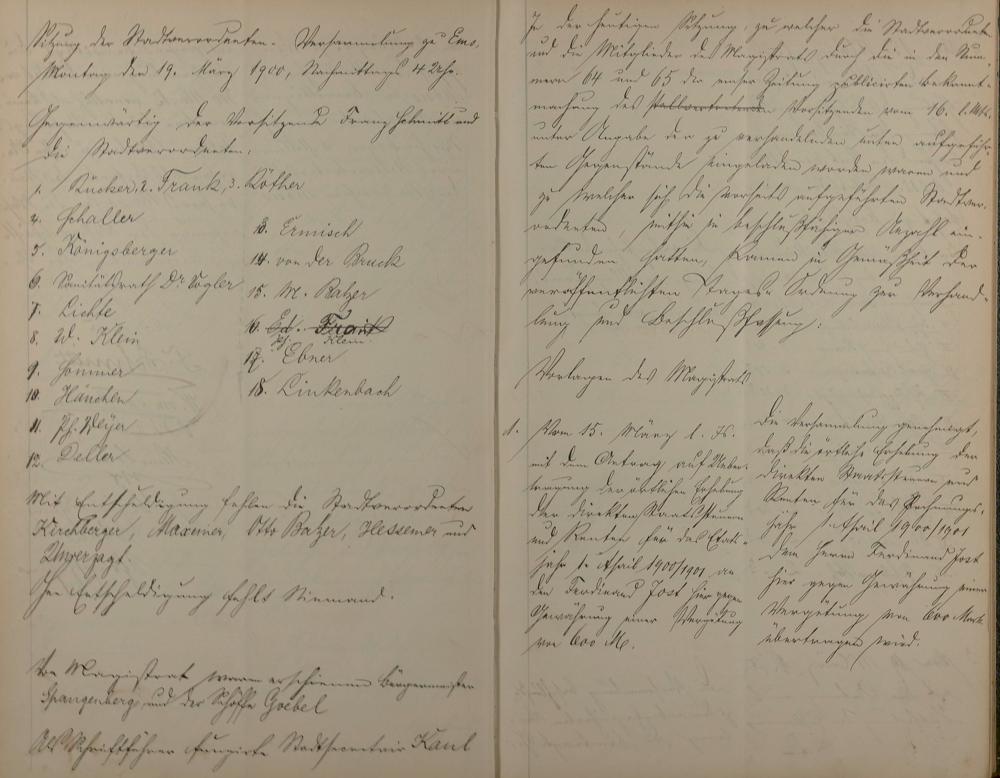 Sitzung der Stadtverordneten-Versammlung zu Ems,
Montag den 19. März 1900, Nachmittags 4 Uhr.
Gegenwärtig der Vorsitzende Franz Schmitt und
die Stadtverordneten:
1. Rücker, 2. Frank, 3. Röther
4. Schaller
5. Königsberger
6. Sanitätsrath Dr. Vogler
7. Lichte
8. W. Klein
9. Sommer
10. Hänchen
11. Ph. Weyer
12. Deller
13. Ermisch
14. von der Bruck
15. M. Balzer
16. Ed. Frank
Klein
17. Ebner
18. Linkenbach
Mit Entschuldigung fehlen die Stadtverordneten
Kirchberger, Maxeiner, Otto Balzer, Hessemer und
Unverzagt.
Ohne Entschuldigung fehlt Niemand.
Vom Magistrat waren erschienen Bürgermeister
Spangenberg und der Schöffe Goebel
Als Schriftführer fungirte Stadtsecretair Kaul
In der heutigen Sitzung, zu welcher die Stadtverordneten
und die Mitglieder des Magistrats durch die in den Num-
mern 64 und 65 der emser Zeitung publicirten Bekannt-
machung des Vorsitzenden vom 16. l. Mts.
unter Angabe der zu verhandelnden unten aufgeführ-
ten Gegenstände eingeladen worden waren und
zu welcher sich die vorseits aufgeführten Stadtver-
ordneten, mithin in beschlußfähiger Anzahl ein-
gefunden hatten, kamen in Gemäßheit der
veröffentlichten Tages-Ordnung zur Verhand-
lung und Beschlußfassung:
Vorlagen des Magistrats
1. Vom 15. März l. Js.
mit dem Antrag auf Ueber-
tragung der örtlichen Erhebung
der direkten Staatssteuern
und Renten für das Etats-
jahr 1. April 1900/1901 an
den Ferdinand Jost hier gegen
Gewährung einer Vergütung
von 600 M.
Die Versammlung genehmigt,
daß die örtliche Erhebung der
direkten Staatssteuern und
Renten für das Rechnungs-
jahr 1. April 1900/1901
dem Herrn Ferdinand Jost
hier gegen Gewährung einer
Vergütung von 600 Mark
übertragen wird.